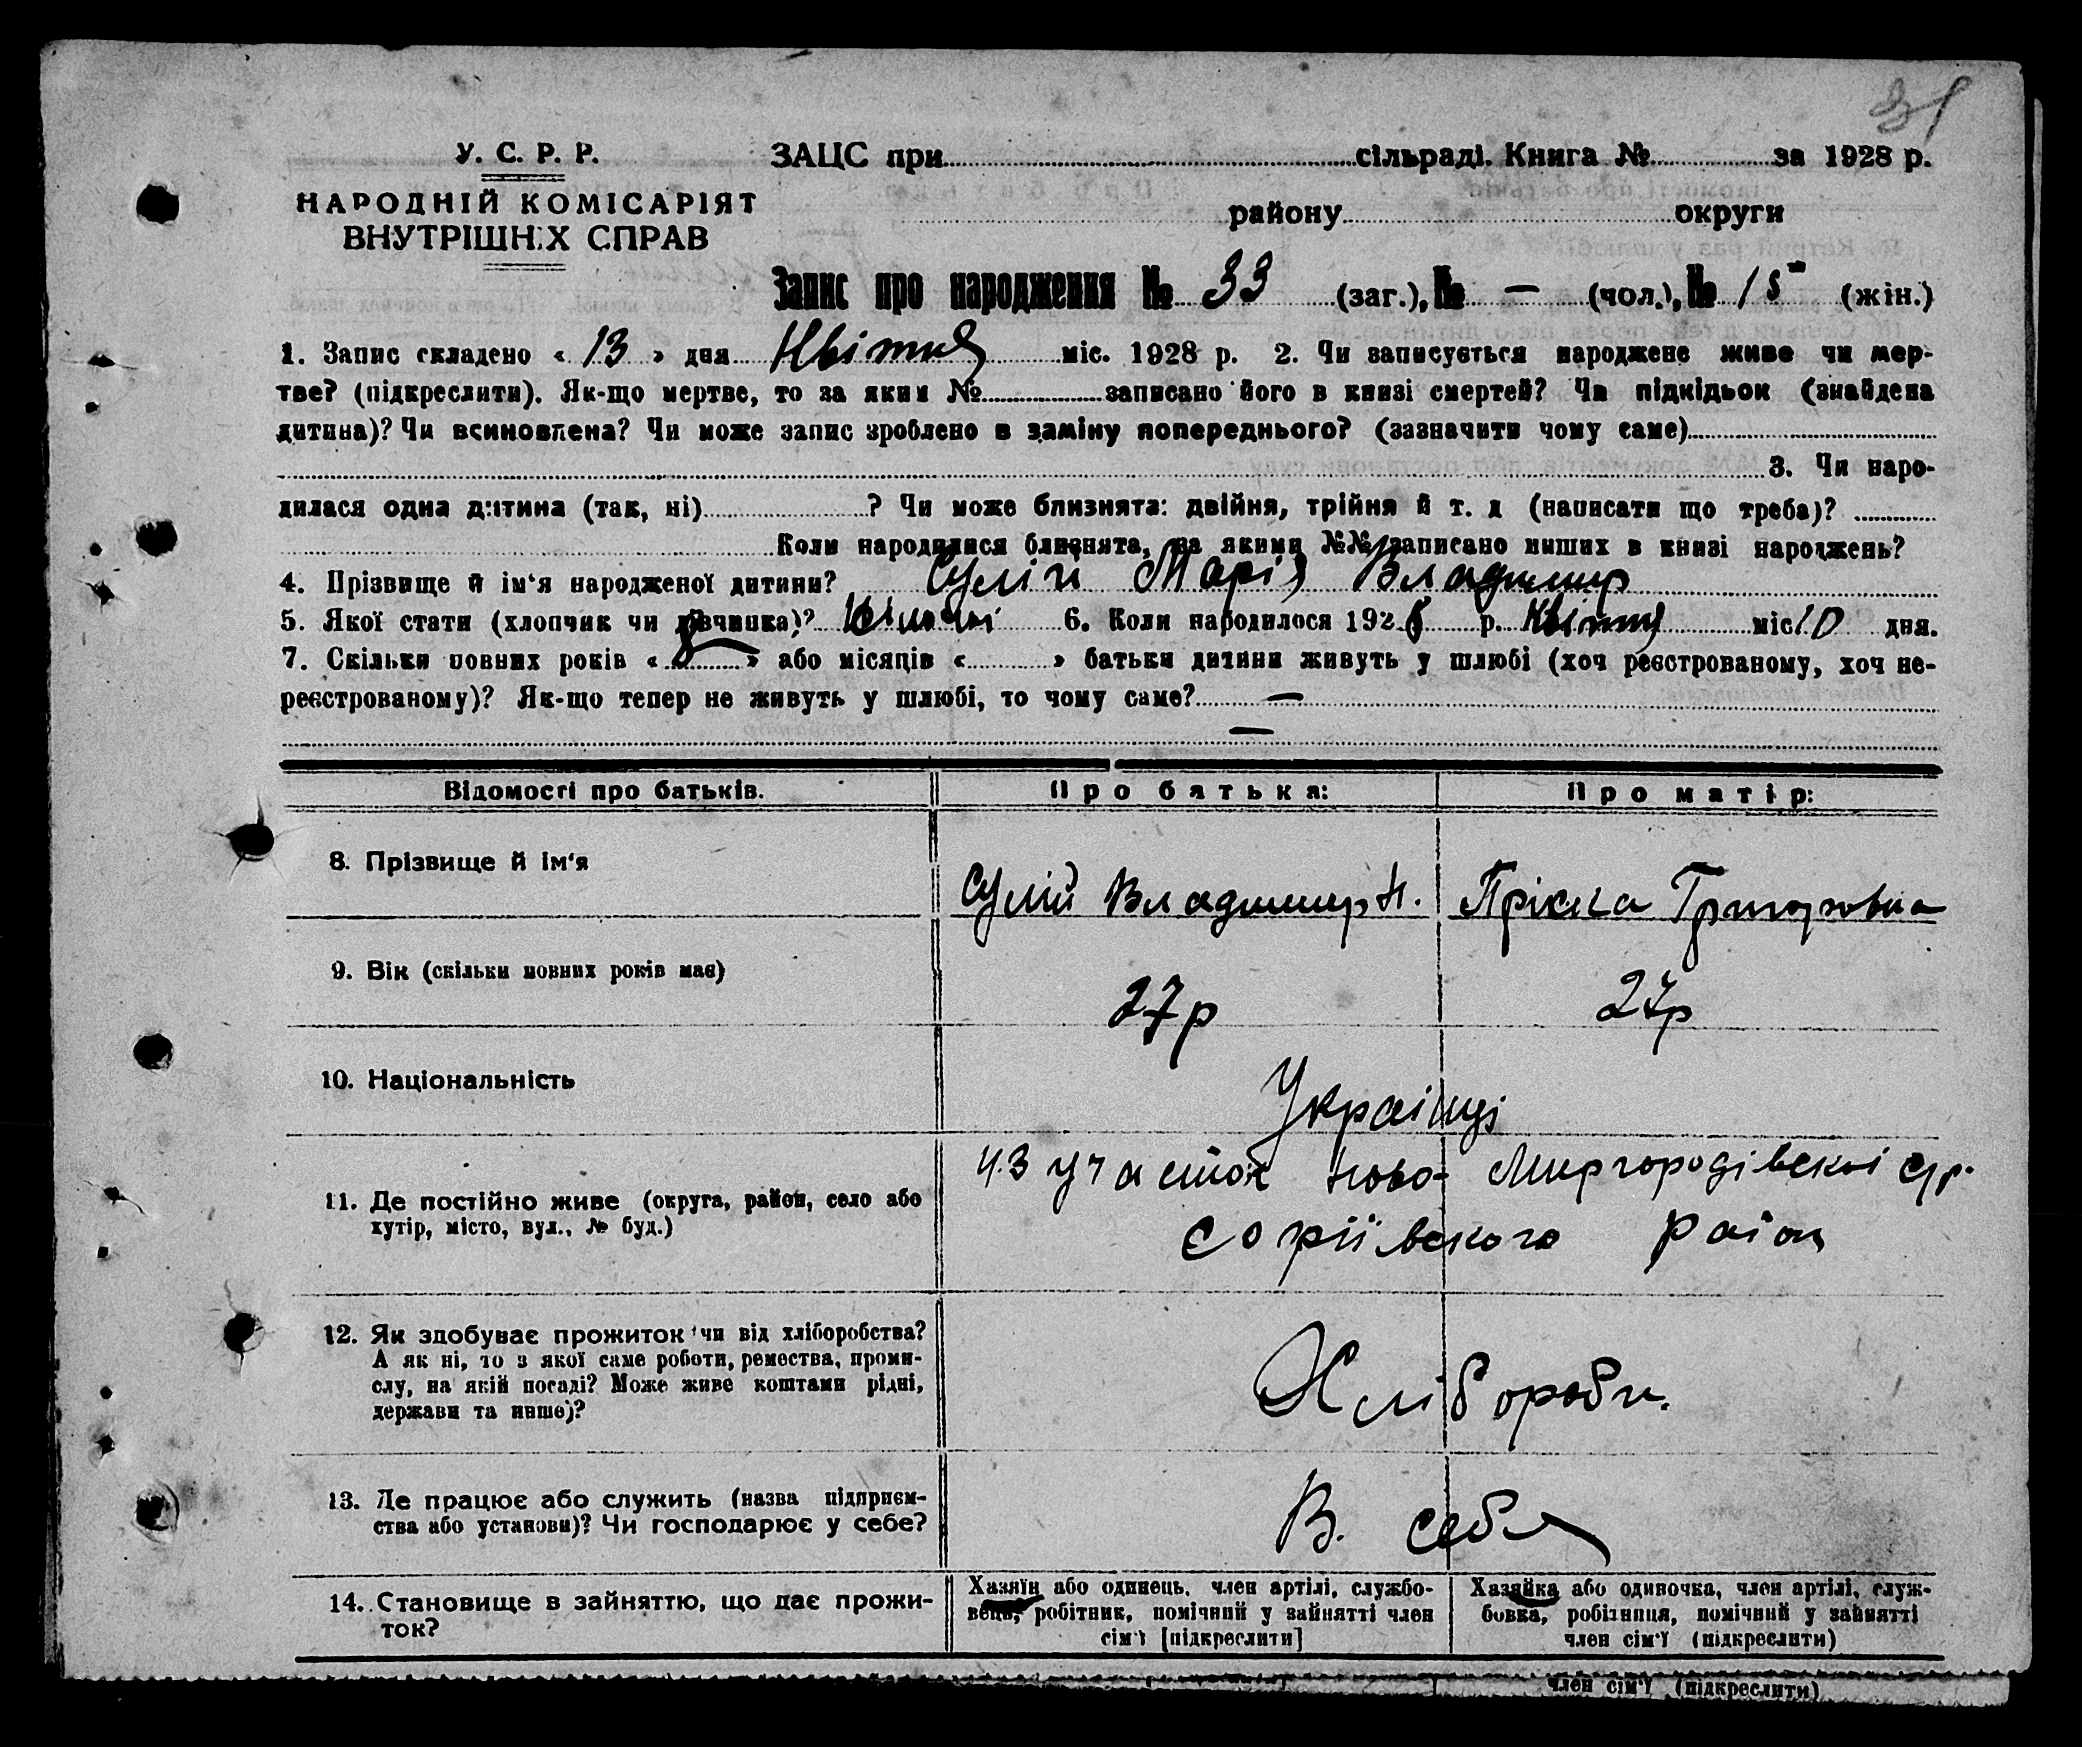 У. С. Р. Р.
НАРОДНІЙ КОМІСАРІЯТ
ВНУТРІШНІХ СПРАВ
ЗАЦС при сільраді. Книга № за 1928 р.
району округи
Запис про народження № 33 (заг.), № — (чол.), № 15 (жін.)
1. Запис складено « 13 » дня Квітня міс. 1928 р. 2. Чи записується народжене живе чи мер-
тве? (підкреслити). Як-що мертве, то за яким № записано його в книзі смертей? Чи підкідьок (знайдена
дитина)? Чи всиновлена? Чи може запис зроблено в заміну попереднього? (зазначити чому саме)
3. Чи наро-
дилася одна дитина (так, ні) ? Чи може близнята: двійня, трійня й т. д (написати що треба)?
Коли народилися близнята, за якими №№ записано инших в книзі народжень?
4. Прізвище й ім‘я народженої дитини? Сулій Марія Владимир
5. Якої стати (хлопчик чи дівчинка)? жіночої 6. Коли народилося 1928 р. Квітня міс. 10 дня.
7. Скільки повних років « » або місяців « » батьки дитини живуть у шлюбі (хоч реєстрованому, хоч не-
реєстрованому)? Як-що тепер не живуть у шлюбі, то чому саме? —
—
Відомості про батьків. Про батька: Про матір:
8. Прізвище й ім‘я
Сулій Владимир Н. Пріська Григоровна
9. Вік (скільки повних років має)
27р 27р
10. Національність
Українці
11. Де постійно живе (округа, район, село або
хутір, місто, вул., № буд.)
43 участок Ново-Миргородівської с/р.
Софіївского району
12. Як здобуває прожиток чи від хліборобства?
А як ні, то з якої саме роботи, ремества, проми-
слу, на якій посаді? Може живе коштами рідні,
держави та инше)?
Хлібороби.
13. Де працює або служить (назва підприєм-
ства або установи)? Чи господарює у себе?
В. себя
14. Становище в зайняттю, що дає прожи-
ток?
Хазяїн або одинець, член артілі, службо-
вець, робітник, помічний у зайнятті член
сім‘ї [підкреслити]
Хазяйка або одиночка, член артілі, служ-
бовка, робітниця, помічний у зайнятті
член сім‘ї (підкреслити)
член сім‘ї (підкреслити)